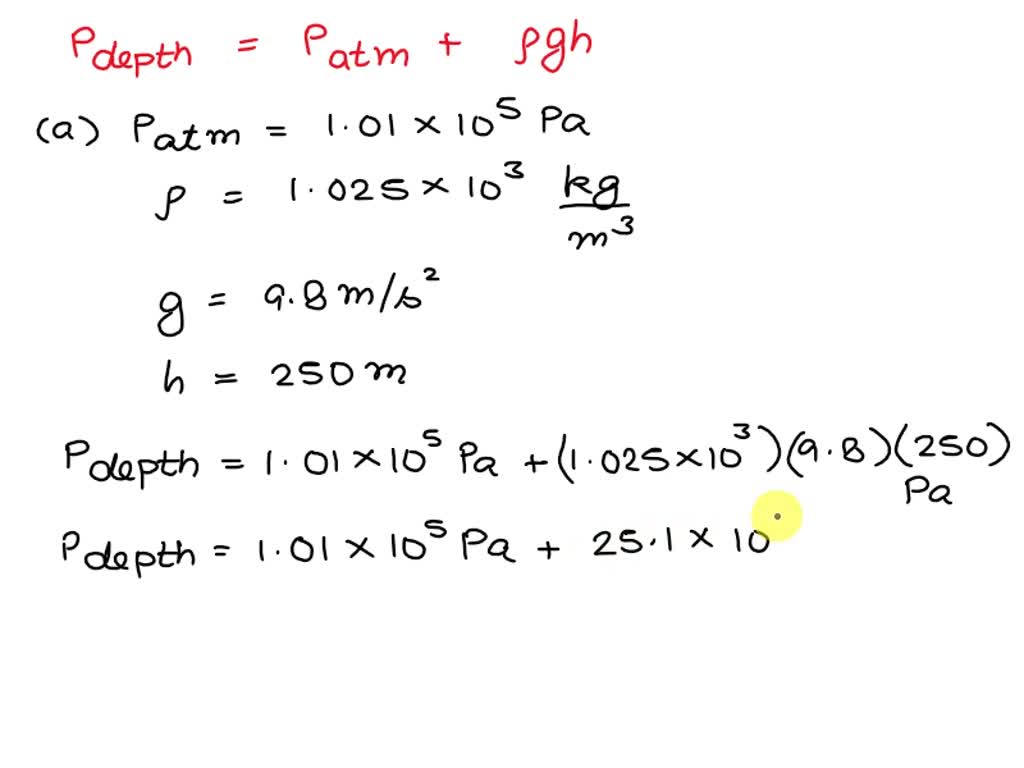 P_depth = P_atm + ρgh
(a) P_atm = 1.01 × 10⁵ Pa
ρ = 1.025 × 10³ kg/m³
g = 9.8 m/s²
h = 250 m
P_depth = 1.01 × 10⁵ Pa + (1.025 × 10³)(9.8)(250) Pa
P_depth = 1.01 × 10⁵ Pa + 25.1 × 10